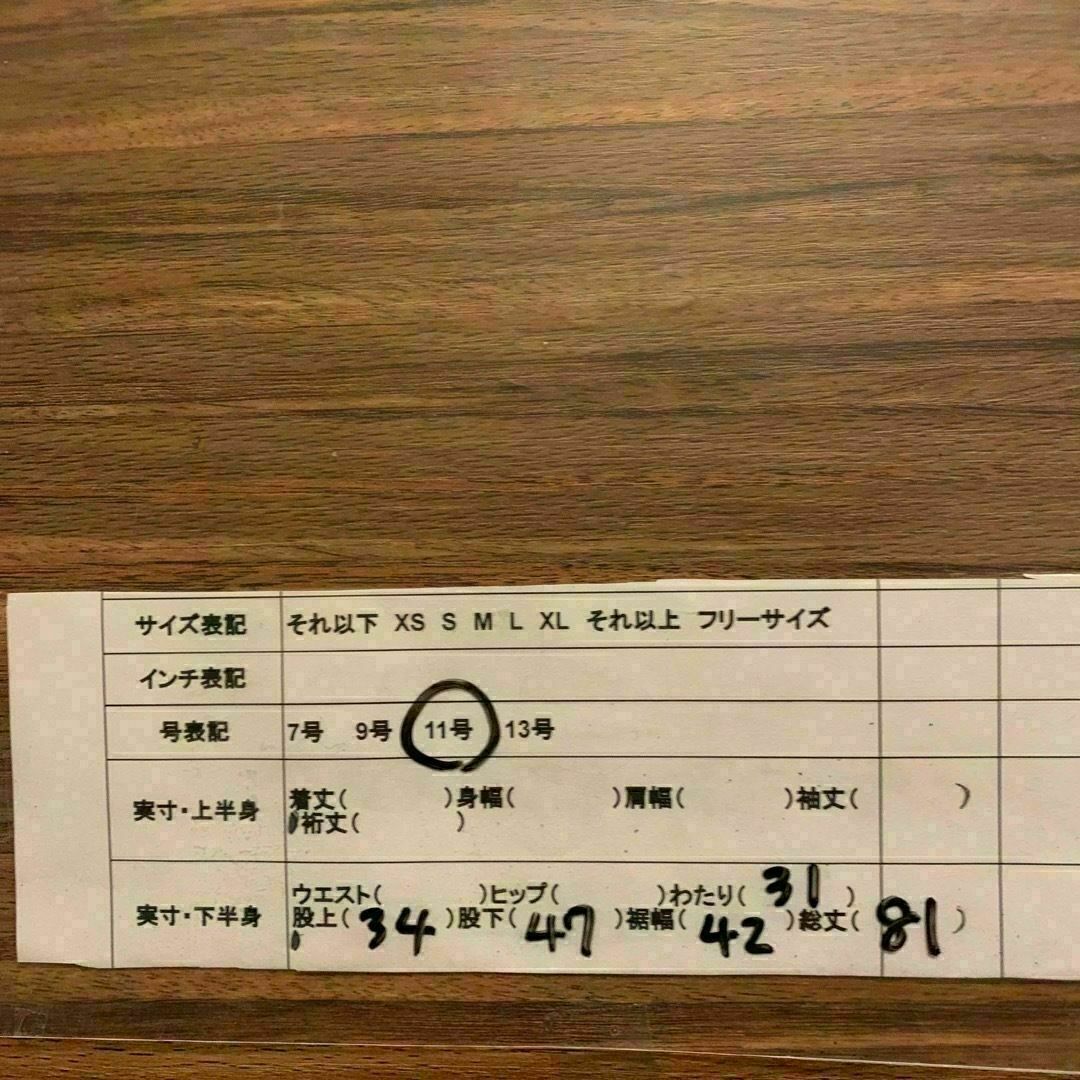 サイズ表記 それ以下 XS S M L XL それ以上 フリーサイズ
インチ表記
号表記 7号 9号 11号 13号
実寸・上半身 着丈( )身幅( )肩幅( )袖丈( )
裄丈( )
実寸・下半身 ウエスト( )ヒップ( )わたり( 31 )
股上( 34 )股下( 47 )裾幅( 42 )総丈( 81 )